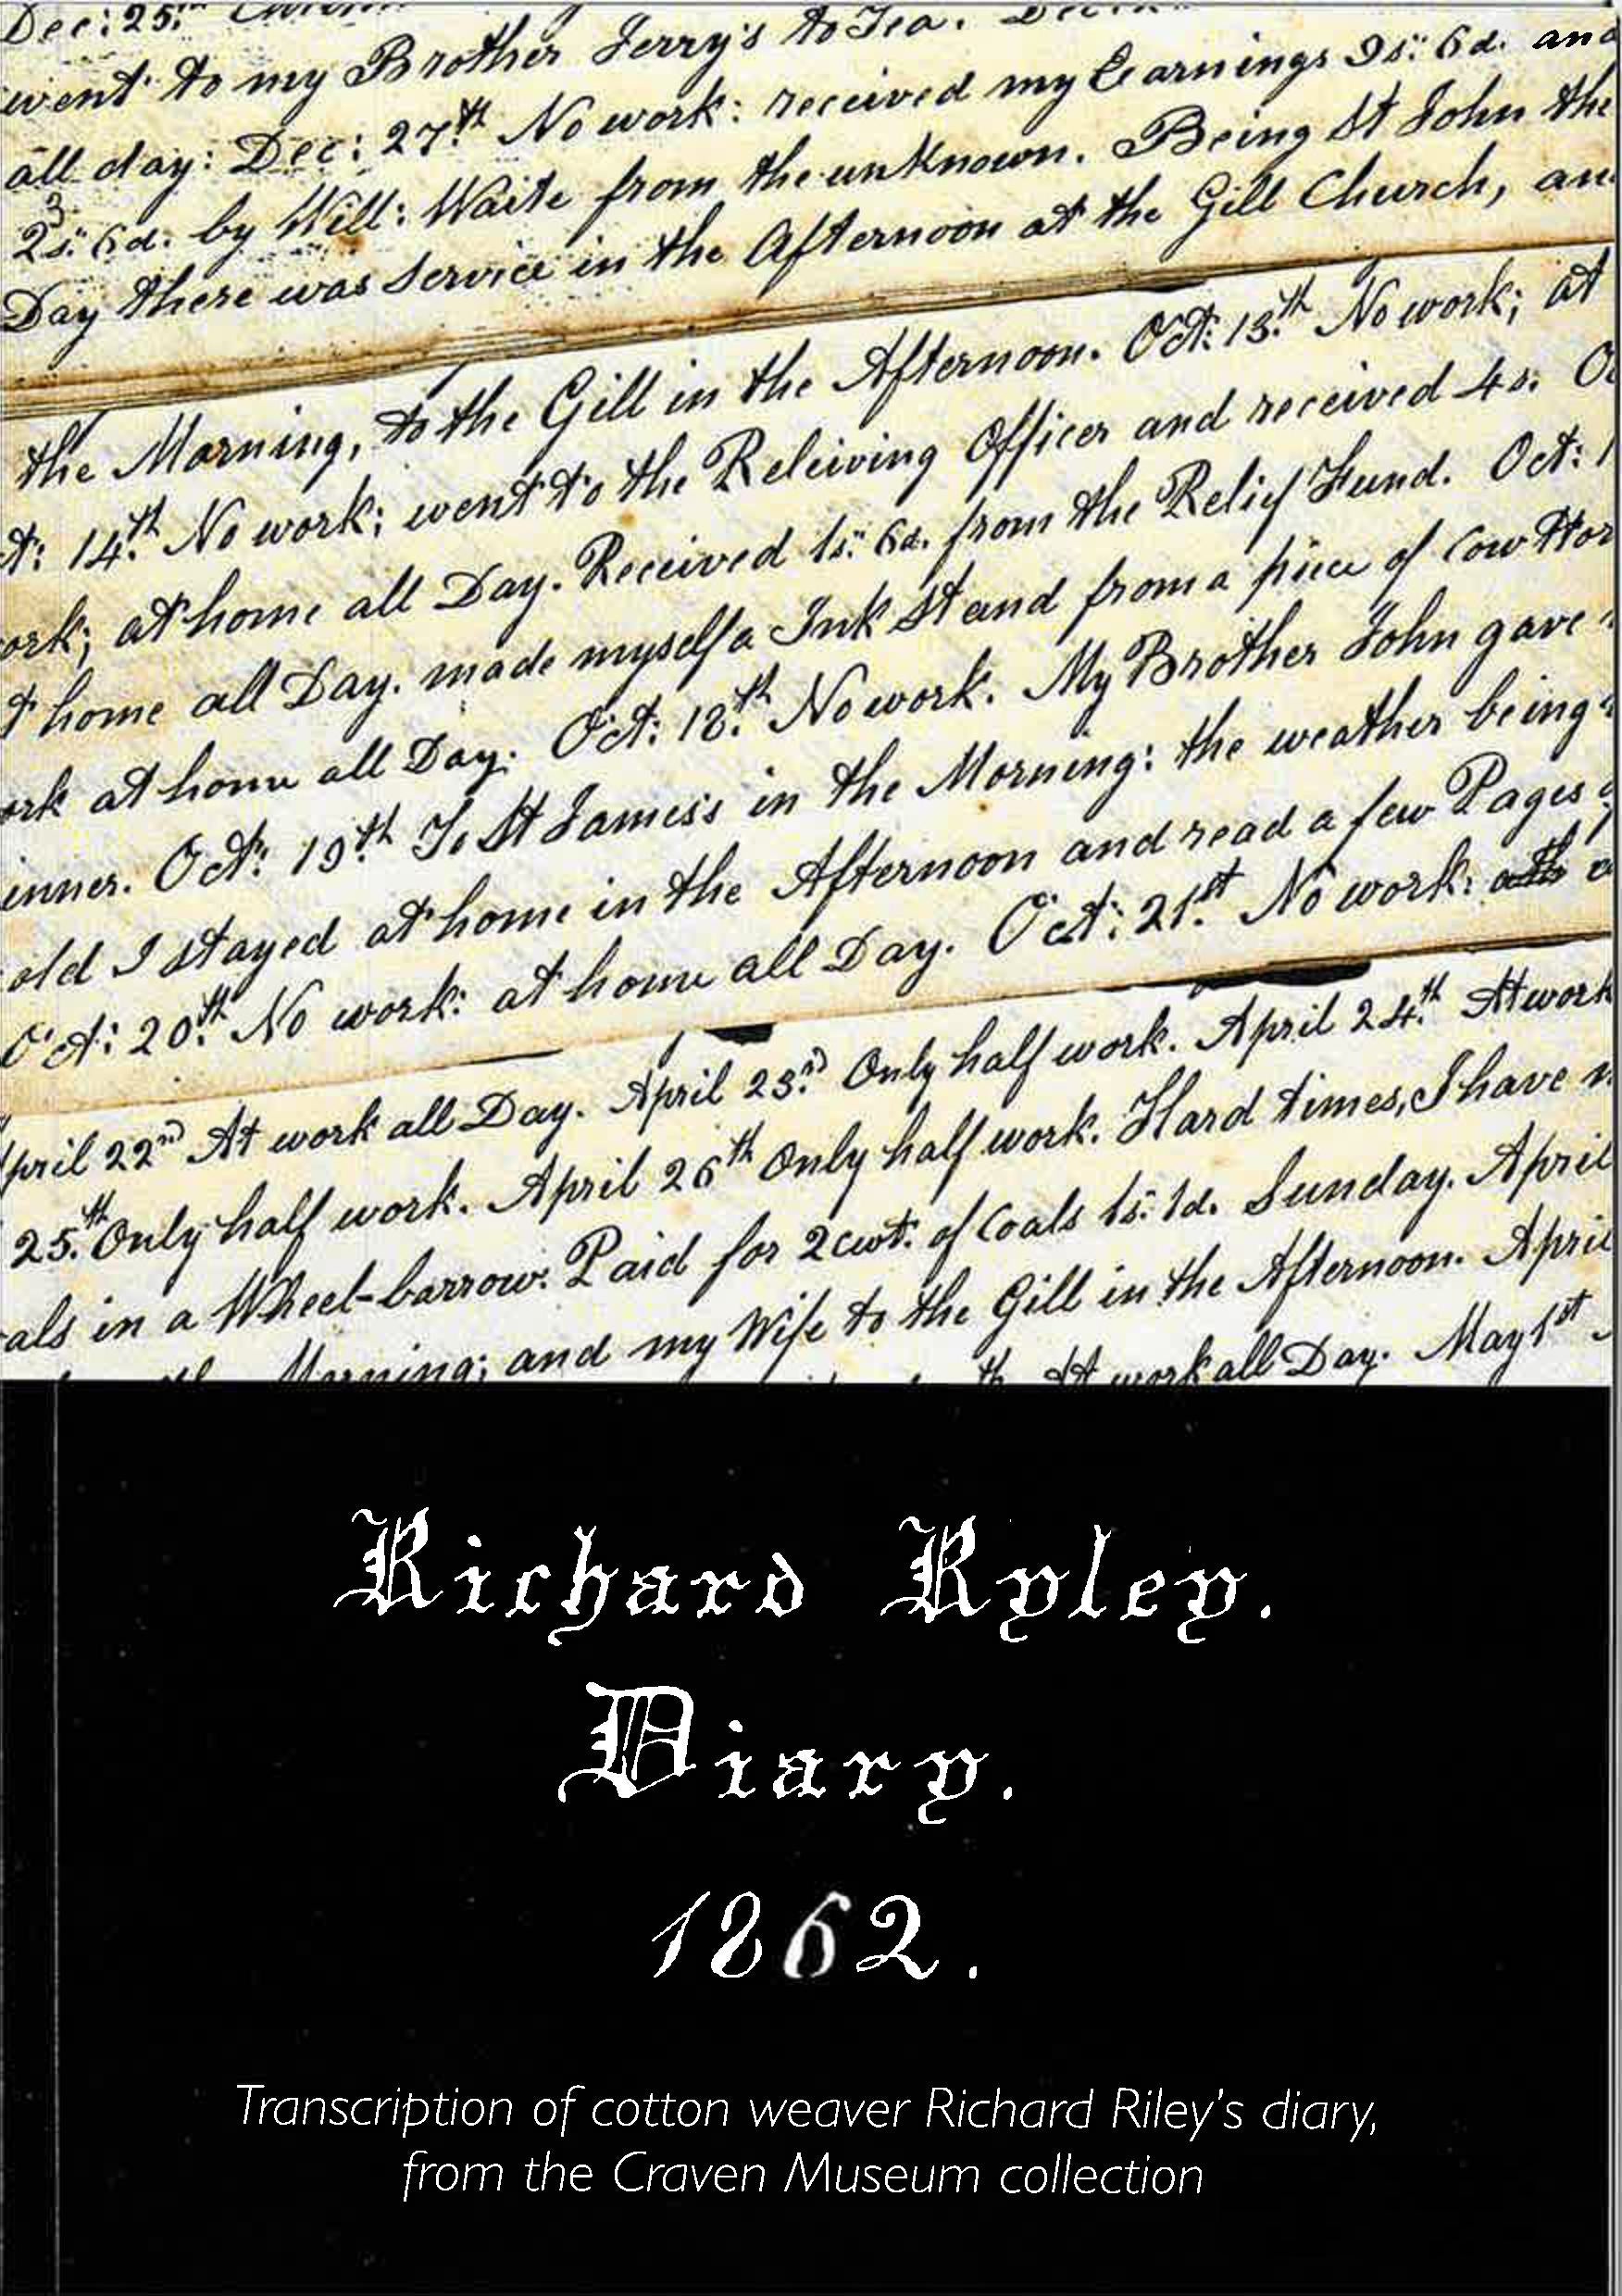 Dec: 25th
went to my Brother Jerry's to Tea.
all day: Dec: 27th No work: received my Earnings 9s: 6d. and
2s: 6d. by Will: Waite from the unknown. Being St John the
Day there was Service in the Afternoon at the Gill Church, an
the Morning, to the Gill in the Afternoon. Oct: 13th No work; at
t: 14th No work; went to the Releiving Officer and received 4s. O
ork; at home all Day. Received 1s: 6d. from the Relief Fund. Oct: 1
t home all Day. made myself a Ink Stand from a piece of Cow Hor
ork at home all Day. Oct: 18th No work. My Brother John gave
inner. Oct: 19th To St James's in the Morning: the weather being
old I stayed at home in the Afternoon and read a few Pages
Oct: 20th No work: at home all Day. Oct: 21st No work:
pril 22nd At work all Day. April 23rd Only half work. April 24th At work
25th Only half work. April 26th Only half work. Hard times, I have
als in a Wheel-barrow. Paid for 2cwt: of Coals 1s: 1d. Sunday. April
Morning; and my Wife to the Gill in the Afternoon. April
th At work all Day. May 1st
Richard Ryley.
Diary.
1862.
Transcription of cotton weaver Richard Riley's diary,
from the Craven Museum collection